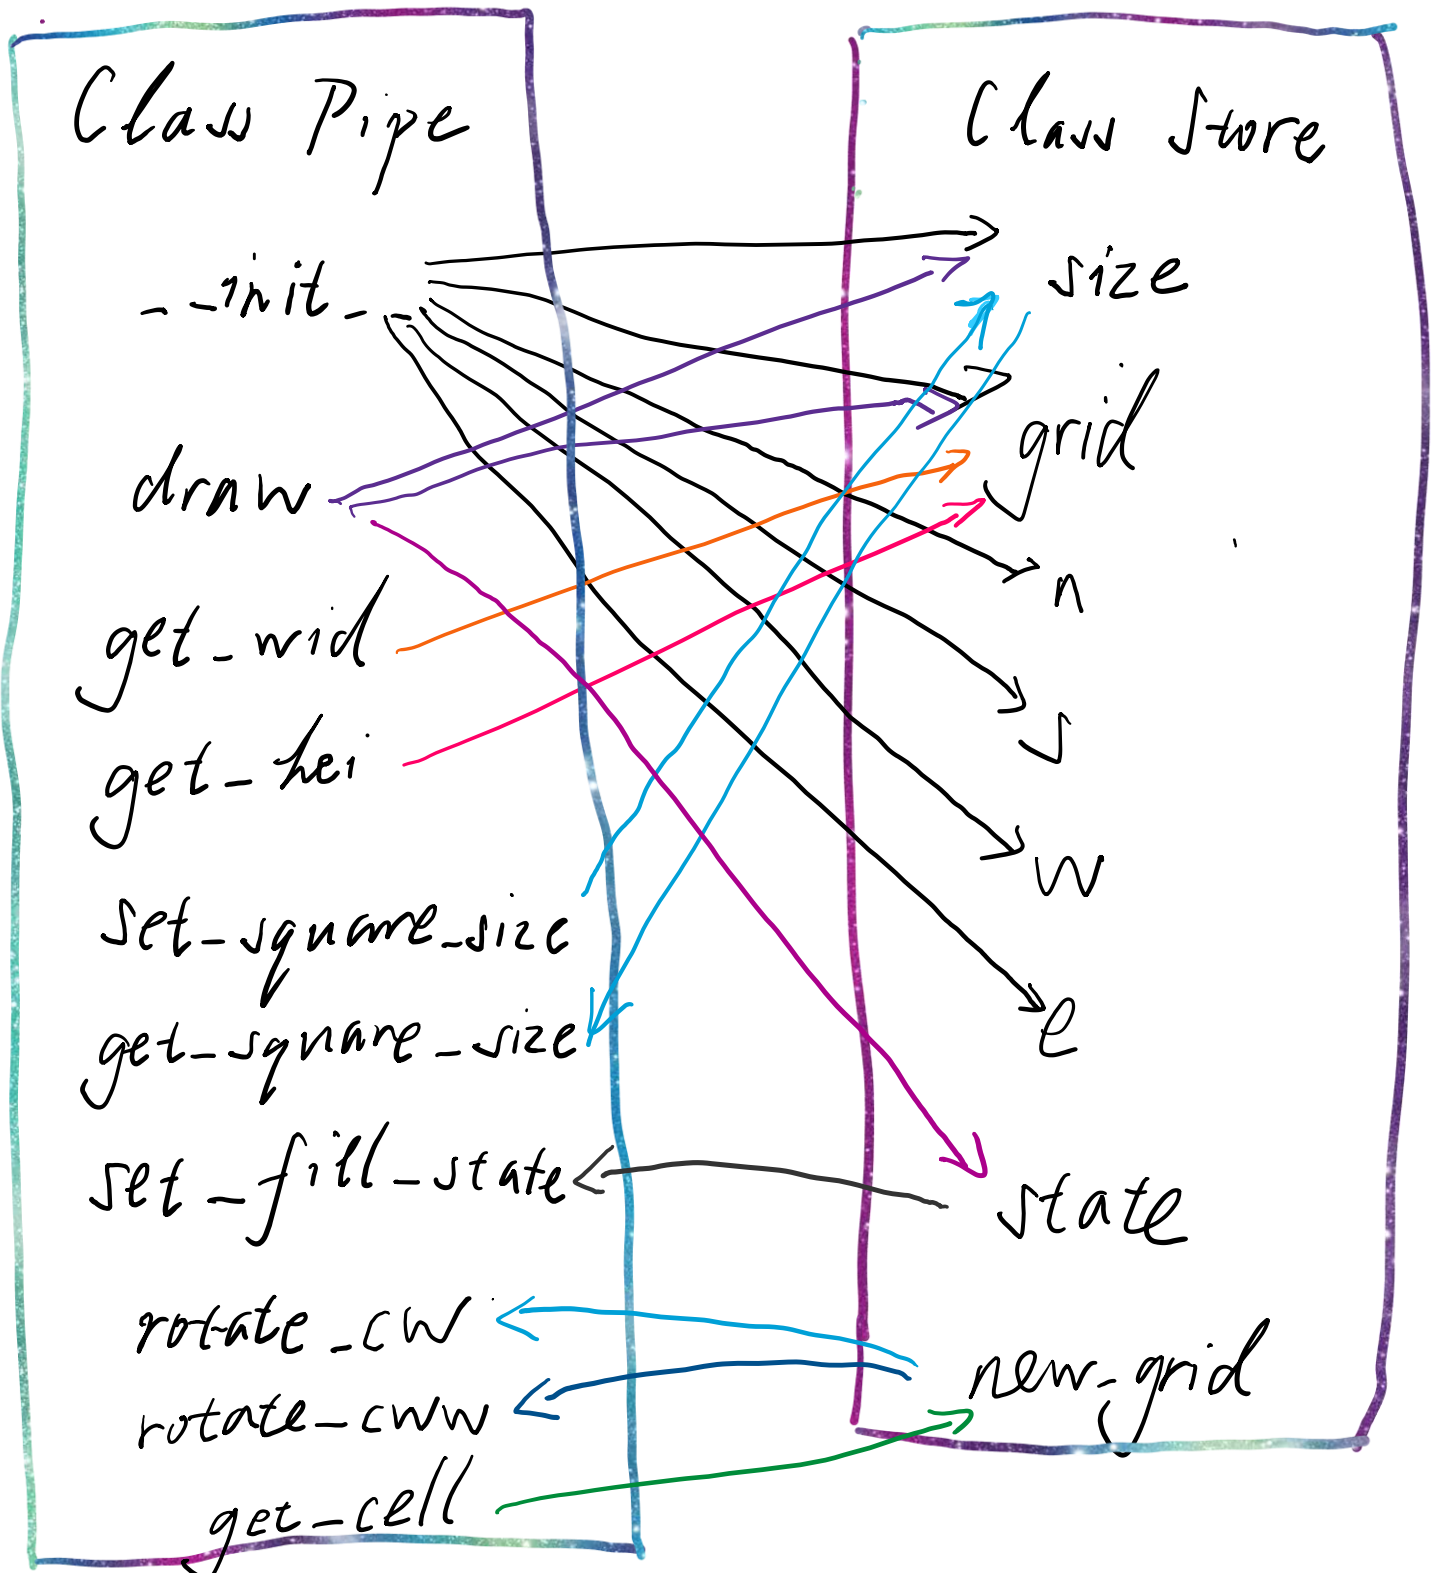 Class Pipe
__init__
draw
get_wid
get_hei
set_square_size
get_square_size
set_fill_state
rotate_cw
rotate_cww
get_cell
Class Store
size
grid
n
s
w
e
state
new_grid